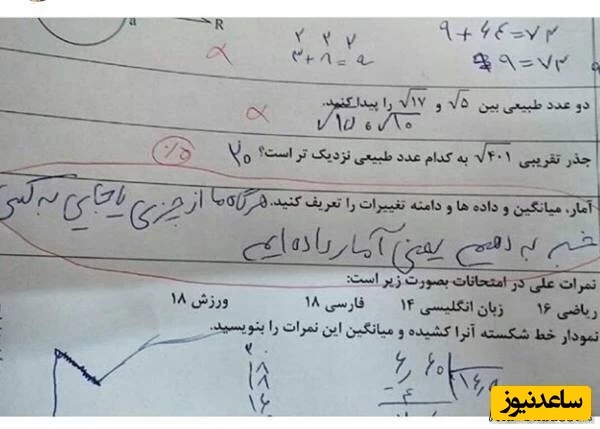 a R
۲ ۲ ۲
۳+۸=۹
۹+۶۴=۷۳
۹=۷۳
دو عدد طبیعی بین √۵ و √۱۷ را پیدا کنید.
√۱۵ و √۱۰
جذر تقریبی √۴۰۱ به کدام عدد طبیعی نزدیک تر است؟ ۲۰
آمار، میانگین و داده ها و دامنه تغییرات را تعریف کنید. هرگاه ما از چیزی یا جایی به کسی
خبر بدهیم یعنی آمار داده ایم
نمرات علی در امتحانات بصورت زیر است:
ریاضی ۱۶ زبان انگلیسی ۱۴ فارسی ۱۸ ورزش ۱۸
نمودار خط شکسته آنرا کشیده و میانگین این نمرات را بنویسید.
۱۸
۱۸
ساعدنیوز